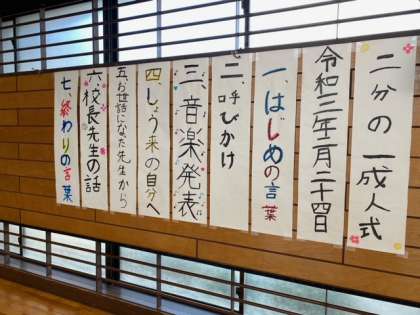 二分の一成人式
令和三年二月二十四日
一、はじめの言葉
二、呼びかけ
三、音楽発表
四、しょう来の自分へ
五、お世話になった先生から
六、校長先生の話
七、終わりの言葉